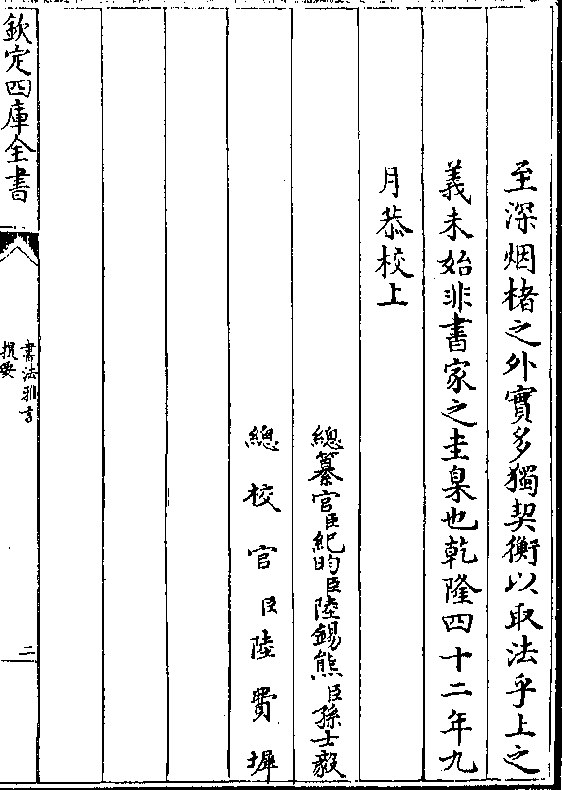 至深烟楮之外實多獨契衡以取法乎上之
義未始非書家之圭臬也乾隆四十二年九
月恭校上
總纂官臣紀昀臣陸錫熊臣孫士毅
總校官臣陸費墀
欽定四庫全書
書法雅言
提要
二